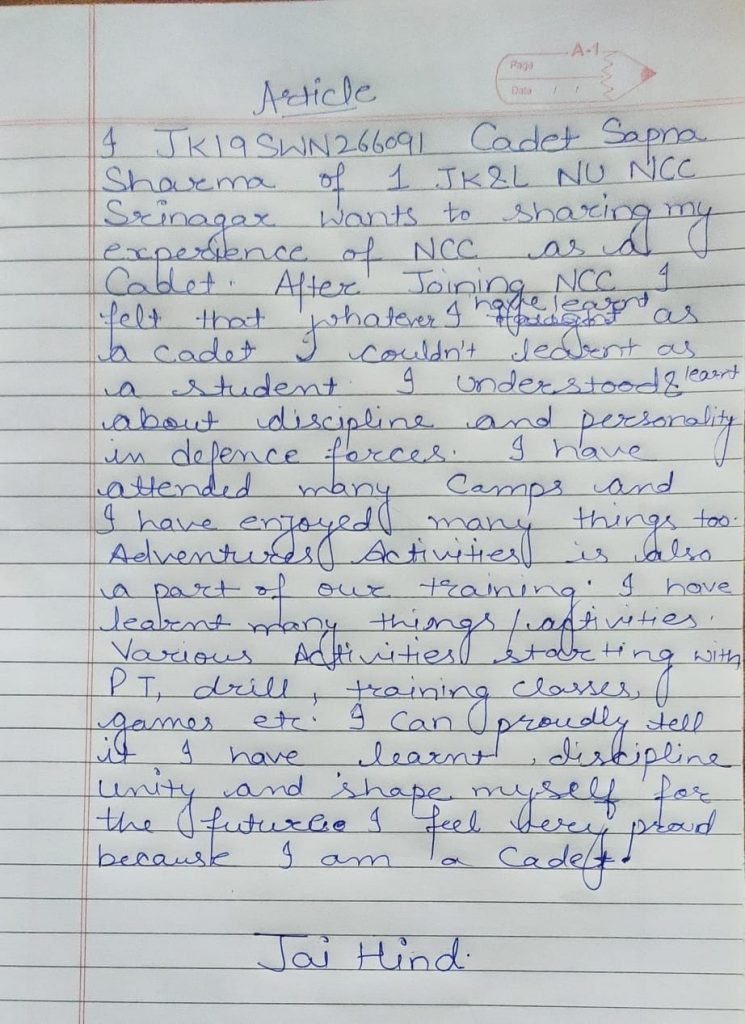 A-1
Page
Date / /
Article
I JK19SWN266091 Cadet Sapna
Sharma of 1 JK&L NU NCC
Srinagar wants to sharing my
experience of NCC as a
Cadet. After Joining NCC I
felt that whatever I have learnt as
a cadet I couldn't learnt as
a student. I understood & learnt
about discipline and personality
in defence forces. I have
attended many Camps and
I have enjoyed many things too.
Adventures Activities is also
a part of our training. I have
learnt many things / activities.
Various Activities starting with
PT, drill, training classes,
games etc. I can proudly tell
it I have learnt, discipline
unity and shape myself for
the future I feel very proud
because I am a Cadet.
Jai Hind.